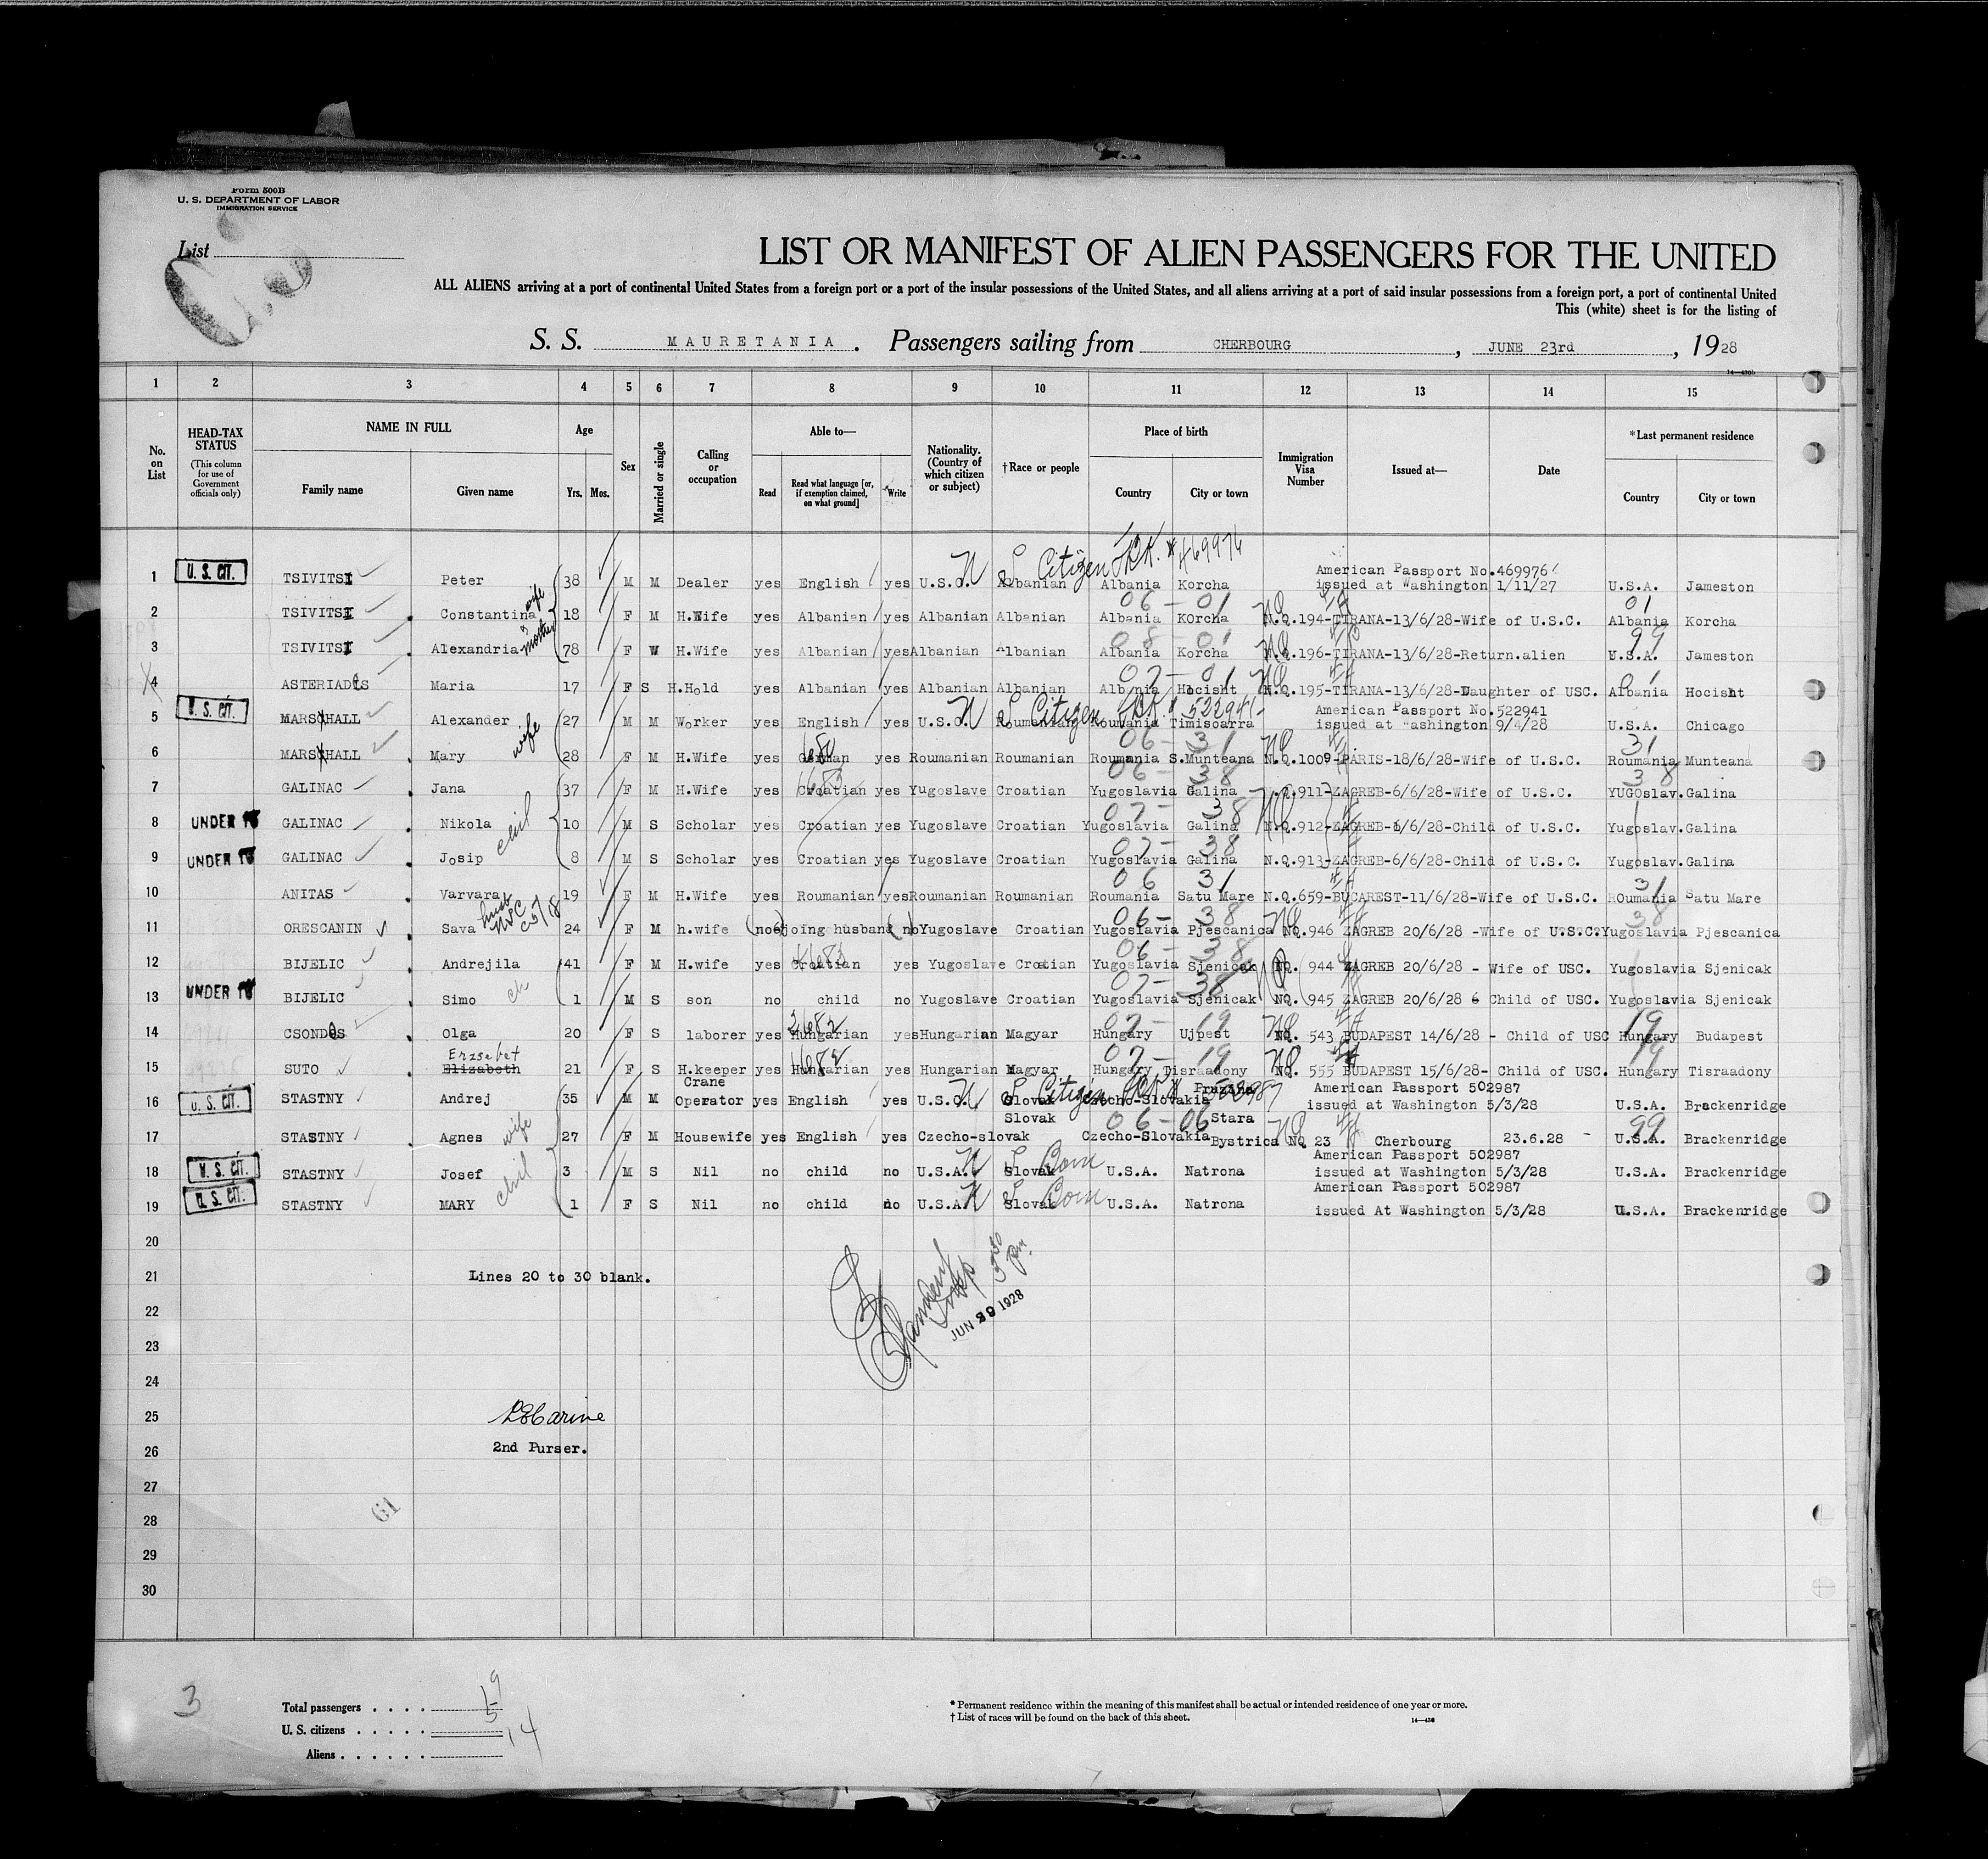 Form 500B
U. S. DEPARTMENT OF LABOR
IMMIGRATION SERVICE
List
LIST OR MANIFEST OF ALIEN PASSENGERS FOR THE UNITED
ALL ALIENS arriving at a port of continental United States from a foreign port or a port of the insular possessions of the United States, and all aliens arriving at a port of said insular possessions from a foreign port, a port of continental United
This (white) sheet is for the listing of
S. S. MAURETANIA. Passengers sailing from CHERBOURG, JUNE 23rd, 1928
14—430b
1 2 3 4 5 6 7 8 9 10 11 12 13 14 15
No. on List
HEAD-TAX STATUS (This column for use of Government officials only)
NAME IN FULL
Family name Given name
Age
Yrs. Mos.
Sex
Married or single
Calling or occupation
Able to—
Read Read what language [or, if exemption claimed, on what ground] Write
Nationality. (Country of which citizen or subject)
†Race or people
Place of birth
Country City or town
Immigration Visa Number
Issued at—
Date
*Last permanent residence
Country City or town
Citizen #469976
American Passport No.469976
1 U. S. CIT. TSIVITSI Peter 38 M M Dealer yes English yes U.S.C. Albanian Albania Korcha issued at Washington 1/11/27 U.S.A. Jameston
wife 06 - 01 NQ 01
2 TSIVITSI Constantina 18 F M H.Wife yes Albanian yes Albanian Albanian Albania Korcha N.Q.194-TIRANA-13/6/28-Wife of U.S.C. Albania Korcha
mother 08 - 01 NQ 99
3 TSIVITSI Alexandria 78 F W H.Wife yes Albanian yes Albanian Albanian Albania Korcha N.Q.196-TIRANA-13/6/28-Return.alien U.S.A. Jameston
07 - 01 01
4 ASTERIADES Maria 17 F S H.Hold yes Albanian yes Albanian Albanian Albania Hocisht N.Q.195-TIRANA-13/6/28-Daughter of USC. Albania Hocisht
Citizen 522941
American Passport No.522941
5 U. S. CIT. MARSHALL Alexander 27 M M Worker yes English yes U.S.C. Roumanian Roumania Timisoarra issued at Washington 9/4/28 U.S.A. Chicago
wife 06 - 31 NQ 31
6 MARSHALL Mary 28 F M H.Wife yes German yes Roumanian Roumanian Roumania S.Munteana N.Q.1009-PARIS-18/6/28-Wife of U.S.C. Roumania Munteana
06 - 38 38
7 GALINAC Jana 37 F M H.Wife yes Croatian yes Yugoslave Croatian Yugoslavia Galina N.Q.911-ZAGREB-6/6/28-Wife of U.S.C. YUGOslav. Galina
07 - 38
8 UNDER 16 GALINAC Nikola 10 M S Scholar yes Croatian yes Yugoslave Croatian Yugoslavia Galina N.Q.912-ZAGREB-6/6/28-Child of U.S.C. Yugoslav. Galina
07 - 38
9 UNDER 16 GALINAC Josip 8 M S Scholar yes Croatian yes Yugoslave Croatian Yugoslavia Galina N.Q.913-ZAGREB-6/6/28-Child of U.S.C. Yugoslav. Galina
06 31 31
10 ANITAS Varvara 19 F M H.Wife yes Roumanian yes Roumanian Roumanian Roumania Satu Mare N.Q.659-BUCAREST-11/6/28-Wife of U.S.C. ROumania Satu Mare
06 - 38 NQ 38
11 ORESCANIN Sava 24 F M h.wife no joing husband no Yugoslave Croatian Yugoslavia Pjescanica NQ. 946 ZAGREB 20/6/28 -Wife of U.S.C. Yugoslavia Pjescanica
06 - 38
12 BIJELIC Andrejila 41 F M H.wife yes Croatian yes Yugoslave Croatian Yugoslavia Sjenicak NQ. 944 ZAGREB 20/6/28 - Wife of USC. Yugoslavia Sjenicak
ch 07 - 38
13 UNDER 16 BIJELIC Simo 1 M S son no child no Yugoslave Croatian Yugoslavia Sjenicak NQ. 945 ZAGREB 20/6/28 Child of USC. Yugoslavia Sjenicak
07 - 19 NQ 19
14 CSONDOS Olga 20 F S laborer yes Hungarian yes Hungarian Magyar Hungary Ujpest NQ. 543 BUDAPEST 14/6/28 - Child of USC Hungary Budapest
Erzsebet 07 - 19 NQ 19
15 SUTO Elizabeth 21 F S H.keeper yes Hungarian yes Hungarian Magyar Hungary Tisraadony NQ. 555 BUDAPEST 15/6/28- Child of USC. Hungary Tisraadony
Crane Citizen American Passport 502987
16 U. S. CIT. STASTNY Andrej 35 M M Operator yes English yes U.S.C. Slovak Czecho-Slovakia issued at Washington 5/3/28 U.S.A. Brackenridge
wife Slovak 06 - 06 Stara 99
17 STASTNY Agnes 27 F M Housewife yes English yes Czecho-slovak Czecho-Slovakia Bystrica NQ 23 Cherbourg 23.6.28 - U.S.A. Brackenridge
Born American Passport 502987
18 U. S. CIT. STASTNY Josef 3 M S Nil no child no U.S.A. Slovak U.S.A. Natrona issued at Washington 5/3/28 U.S.A. Brackenridge
Born American Passport 502987
19 U. S. CIT. STASTNY MARY 1 F S Nil no child no U.S.A. Slovak U.S.A. Natrona issued At Washington 5/3/28 U.S.A. Brackenridge
20
21 Lines 20 to 30 blank.
22
JUN 29 1928
23
24
25
26 2nd Purser.
27
28
61
29
30
3
Total passengers 19
U. S. citizens 5
Aliens 14
* Permanent residence within the meaning of this manifest shall be actual or intended residence of one year or more.
† List of races will be found on the back of this sheet.
14—430